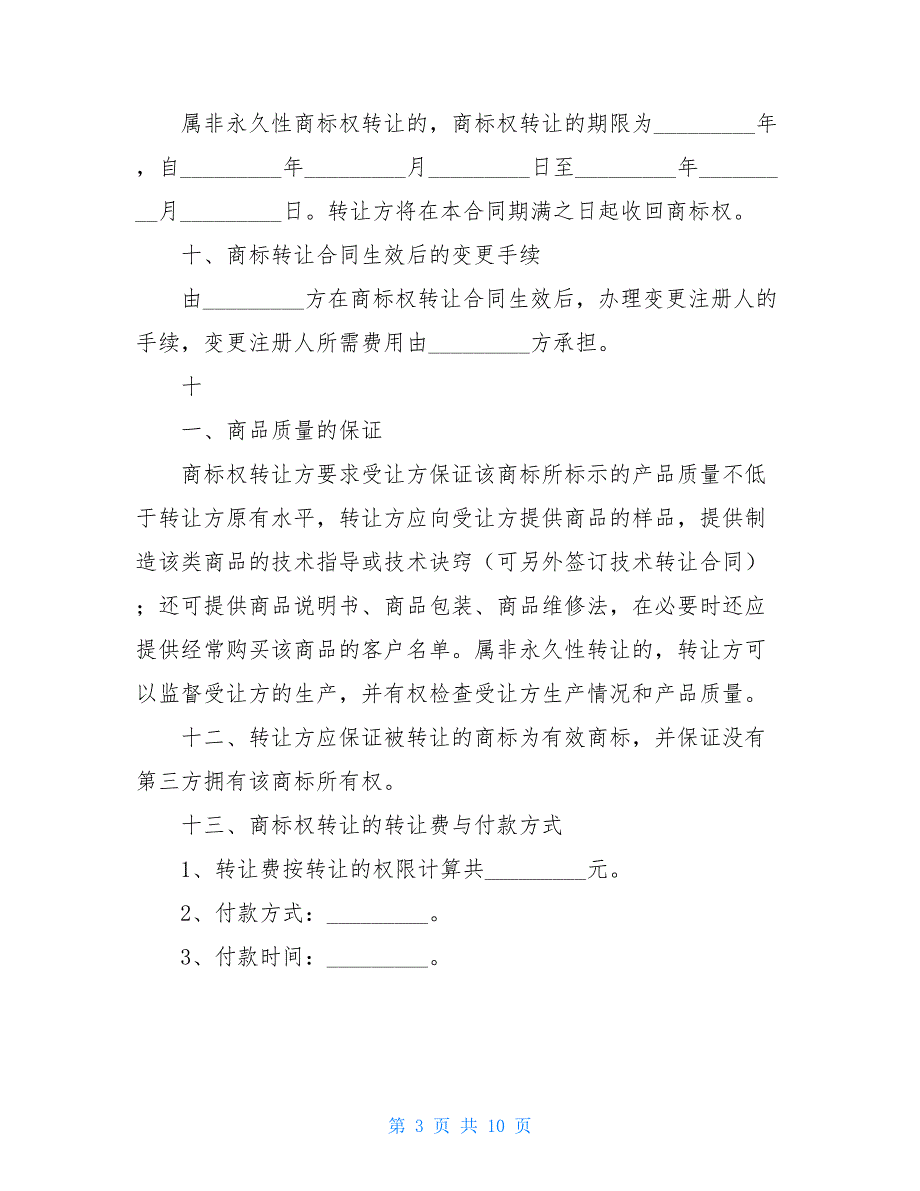 属非永久性商标权转让的，商标权转让的期限为_________年
，自_________年_________月_________日至_________年_______
__月_________日。转让方将在本合同期满之日起收回商标权。
十、商标转让合同生效后的变更手续
由_________方在商标权转让合同生效后，办理变更注册人的
手续，变更注册人所需费用由_________方承担。
十
一、商品质量的保证
商标权转让方要求受让方保证该商标所标示的产品质量不低
于转让方原有水平，转让方应向受让方提供商品的样品，提供制
造该类商品的技术指导或技术诀窍（可另外签订技术转让合同）
；还可提供商品说明书、商品包装、商品维修法，在必要时还应
提供经常购买该商品的客户名单。属非永久性转让的，转让方可
以监督受让方的生产，并有权检查受让方生产情况和产品质量。
十二、转让方应保证被转让的商标为有效商标，并保证没有
第三方拥有该商标所有权。
十三、商标权转让的转让费与付款方式
1、转让费按转让的权限计算共_________元。
2、付款方式：_________。
3、付款时间：_________。
第 3 页 共 10 页